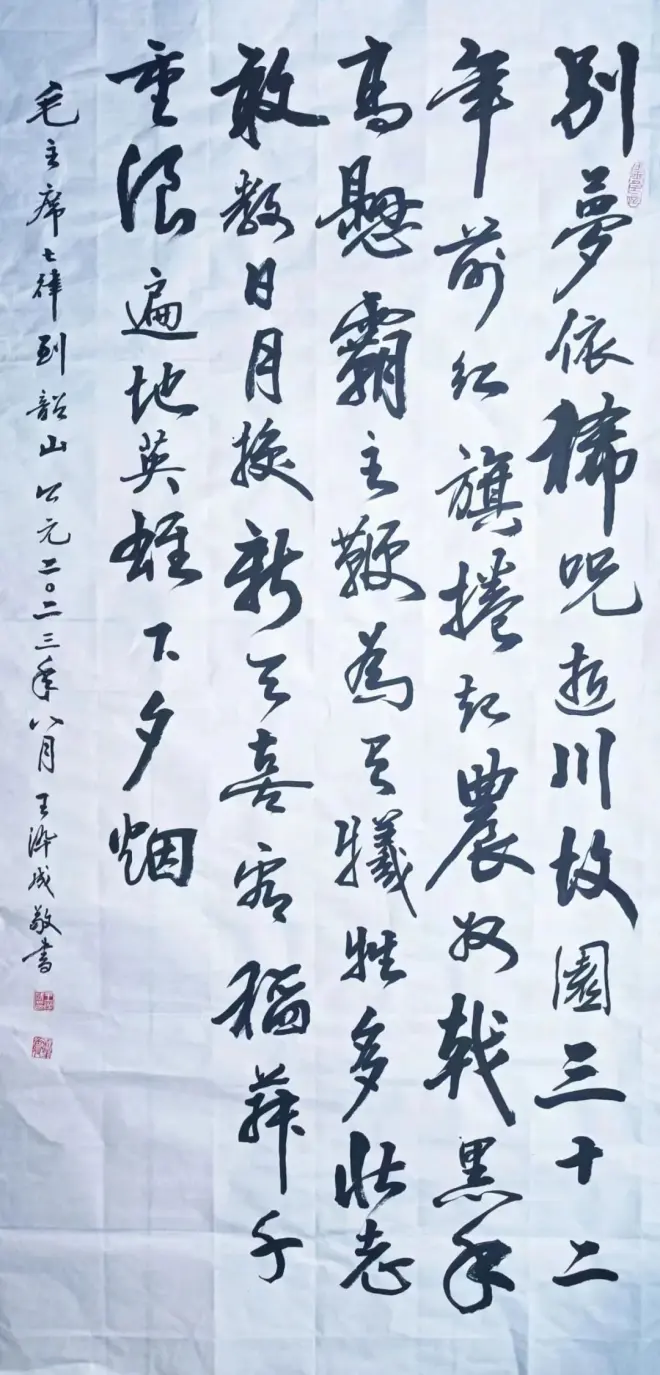 别夢依稀咒逝川故園三十二
年前红旗捲起農奴戟黑手
高懸霸主鞭為有犧牲多壮志
敢教日月换新天喜看稻菽千
重浪遍地英雄下夕烟
毛主席七律到韶山公元二〇二三年八月王成敬書